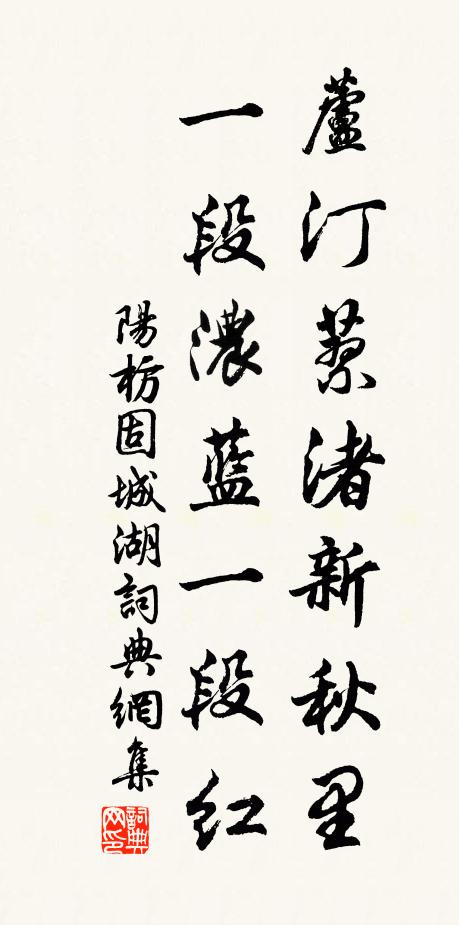 蘆汀蓼渚新秋里
一段濃藍一段红
陽枋固城湖詞典網集
詞典网印